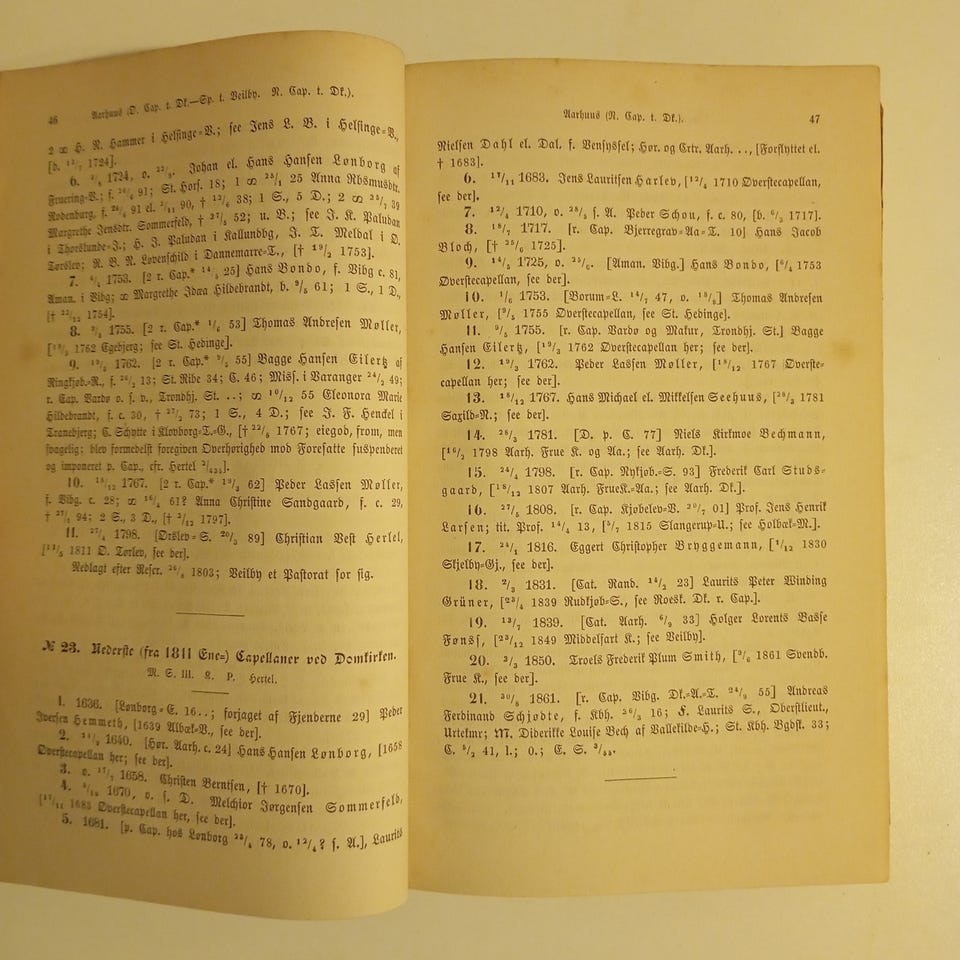 46 Aarhuus (D. Cap. t. Dk.—Sp. t. Veilby. N. Cap. t. Dk.).
2 ∞ H. N. Hammer i Helsinge=V.; see Jens L. B. i Helsinge=V.,
[b. 1724].
6. 1724, o. Johan el. Hans Hansen Lønborg af
Fruering=V.; f. 91; St. Hors. 18; 1 ∞ 25 Anna Rasmusdtr.
Rodenburg, f. 91 el. 90, † 38; 1 S., 5 D.; 2 ∞ 39
Margrethe Jensdtr. Sommerfeld, † 52; u. B.; see J. K. Paludan
i Thorslunde=J.; H. J. Paludan i Kallundbg, J. T. Meldal i O.
Tørslev; N. B. N. Løvenschild i Dannemarre=T., [† 19/2 1753].
7. 1753. [2 r. Cap.* 25] Hans Bondo, f. Vibg c. 81,
Aman. i Vibg; ∞ Margrethe Idæa Hildebrandt, b. 61; 1 S., 1 D.,
[† 1754].
8. 1755. [2 r. Cap.* 1/6 53] Thomas Andresen Møller,
[1762 Egebjerg; see St. Hedinge].
9. 1762. [2 r. Cap.* 9/5 55] Bagge Hansen Eilertz af
Ringkjøb.=N., f. 13; St. Ribe 34; C. 46; Miss. i Varanger 24/2 49;
r. Cap. Vardø o. s. v., Trondhj. St. ..; ∞ 16/12 55 Eleonora Marie
Hildebrandt, f. c. 30, † 27/2 73; 1 S., 4 D.; see J. F. Hendel i
Tranebjerg; C. Schytte i Klovborg=T.=G., [† 22/5 1767; eiegod, from, men
svagelig; blev formedelst foregiven Overhørighed mod Foresatte suspenderet
og imponeret p. Cap., cfr. Hertel].
10. 18/12 1767. [2 r. Cap.* 19/3 62] Peder Lassen Møller,
f. Vibg. c. 28; ∞ 61? Anna Christine Sandgaard, f. c. 29,
† 94; 2 S., 3 D., [† 2/12 1797].
11. 27/4 1798. [Ørslev=S. 89] Christian Vest Hertel,
[1811 O. Tørslev, see der].
Nedlagt efter Rescr. 1803; Veilby et Pastorat for sig.
№ 23. Nederste (fra 1811 Ene=) Capellaner ved Domkirken.
M. S. III. 8. P. Hertel.
1. 1636. [Lønborg=E. 16..; forjaget af Fjenderne 29] Peder
Iversen Hemmeth, [1639 Albæk=V., see der].
2. 1640. [Hør. Aarh. c. 24] Hans Hansen Lønborg, [1658
Øverstecapellan her; see der].
3. o. 1658. Christen Berntsen, [† 1670].
4. 1670, o. s. D. Melchior Jørgensen Sommerfeld,
[17/11 1683 Øverstecapellan her, see der].
5. 1681. [p. Cap. hos Lønborg 78, o. 12/4? s. A.], Laurits
Aarhuus (N. Cap. t. Dk.). 47
Nielsen Dahl el. Dal, f. Vensyssel; Hør. og Crtr. Aarh. . ., [Forflyttet el.
† 1683].
6. 17/11 1683. Jens Lauritsen Harlev, [12/4 1710 Øverstecapellan,
see der].
7. 12/4 1710, o. 28/5 s. A. Peder Schou, f. c. 80, [b. 6/5 1717].
8. 18/7 1717. [r. Cap. Bjerregrav=Aa=T. 10] Hans Jacob
Bloch, [† 25/6 1725].
9. 14/5 1725, o. 25/6. [Aman. Vibg.] Hans Bondo, [6/4 1753
Øverstecapellan, see der].
10. 1/6 1753. [Borum=L. 14/7 47, o. 18/8] Thomas Andresen
Møller, [9/5 1755 Øverstecapellan, see St. Hedinge].
11. 9/5 1755. [r. Cap. Vardø og Makur, Trondhj. St.] Bagge
Hansen Eilertz, [19/3 1762 Øverstecapellan her; see der].
12. 19/3 1762. Peder Lassen Møller, [18/12 1767 Øverste=
capellan her; see der].
13. 18/12 1767. Hans Michael el. Mikkelsen Seehuus, [28/3 1781
Saxild=N.; see der].
14. 28/3 1781. [D. p. C. 77] Niels Kirkmoe Bechmann,
[16/2 1798 Aarh. Frue K. og Aa.; see Aarh. Dk.].
15. 24/4 1798. [r. Cap. Nykjøb.=S. 93] Frederik Carl Stubs=
gaard, [18/12 1807 Aarh. FrueK.=Aa.; see Aarh. Dk.].
16. 27/5 1808. [r. Cap. Kjøbelev=V. 20/7 01] Prof. Jens Henrik
Larsen; tit. Prof. 14/4 13, [5/7 1815 Slangerup=U.; see Holbæk=M.].
17. 24/1 1816. Eggert Christopher Bryggemann, [1/12 1830
Skjelby=Gj., see der].
18. 2/3 1831. [Cat. Rand. 14/2 23] Laurits Peter Winding
Grüner, [23/4 1839 Rudkjøb=S., see Roesk. Dk. r. Cap.].
19. 13/7 1839. [Cat. Aarh. 6/9 33] Holger Lorents Basse
Fønss, [23/12 1849 Middelfart K.; see Veilby].
20. 3/3 1850. Troels Frederik Plum Smith, [9/6 1861 Svendb.
Frue K., see der].
21. 30/8 1861. [r. Cap. Vibg. Dk.=A.=T. 24/9 55] Andreas
Ferdinand Schjødte, f. Kbh. 26/3 16; F. Laurits S., Oberstlieut.,
Urtekmr; M. Diderikke Louise Bech af Vallekilde=H.; St. Kbh. Vgdst. 33;
C. 5/2 41, l.; o.; E. S. 3/55.